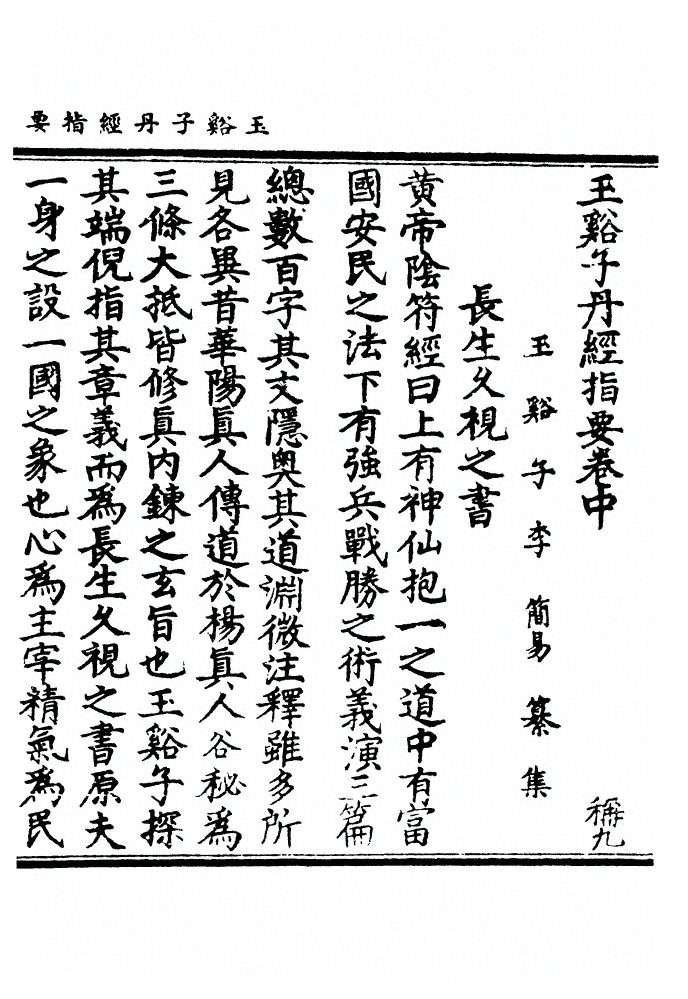 玉谿子丹經指要
玉谿子丹經指要卷中
稱九
玉谿子李簡易纂集
長生久視之書
黄帝陰符經曰上有神仙抱一之道中有當
國安民之法下有強兵戰勝之術義演三篇
總數百字其文隱奥其道淵微注釋雖多所
見各異昔華陽眞人傳道於楊眞人谷秘爲
三條大抵皆修眞内鍊之玄旨也玉谿子探
其端倪指其章義而爲長生久視之書原夫
一身之設一國之象也心爲主宰精氣爲民